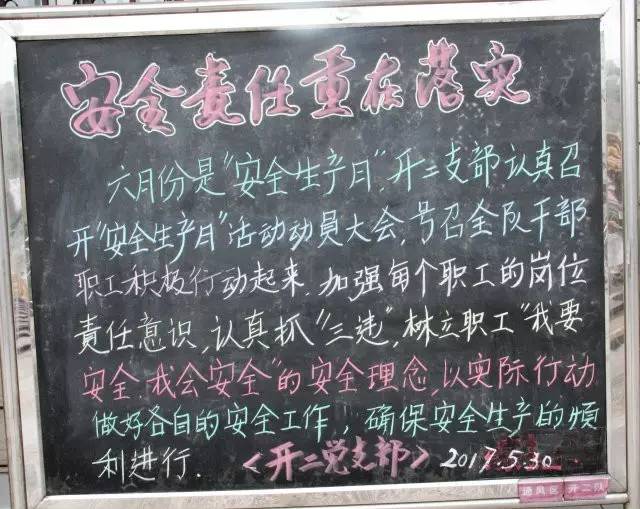 安全责任重在落实
六月份是“安全生产月”,开二支部认真召
开“安全生产月”活动动員大会,号召全队干部
职工积极行动起来,加强每个职工的岗位
责任意识,认真抓“三违”,树立职工“我要
安全,我会安全”的安全理念,以实际行动
做好各自的安全工作,确保安全生产的顺
利进行.
<开二党支部> 2017.5.30
通风区 开二队